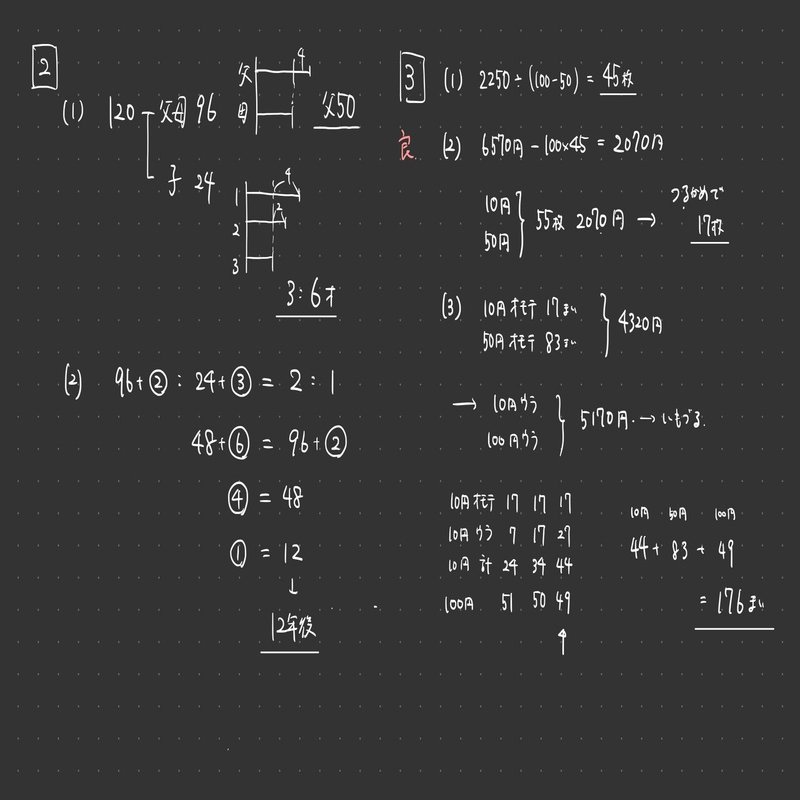 2
(1) 120 父母 96
父
母
4
父50
子 24
1
2
3
4
2
3:6才
(2) 96+② : 24+③ = 2 : 1
48+⑥ = 96+②
④ = 48
① = 12
↓
12年後
3
(1) 2250÷(100-50) = 45枚
良 (2) 6570円-100×45 = 2070円
10円
50円
55枚 2070円 → つるかめで
17枚
(3) 10円オモテ 17まい
50円オモテ 83まい
4320円
→ 10円ウラ
100円ウラ
5170円. → いもづる.
10円オモテ 17 17 17
10円ウラ 7 17 27
10円 計 24 34 44
100円 51 50 49
↑
10円 50円 100円
44 + 83 + 49
= 176まい